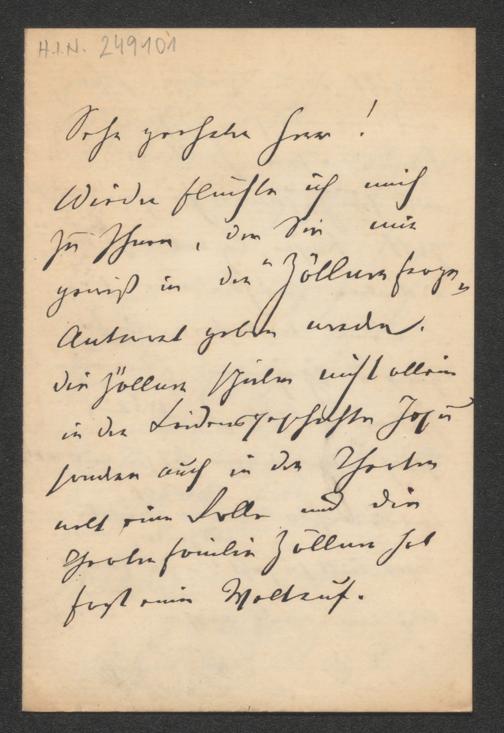 H.I.N. 249101
Sehr geehrter Herr!
Wieder flüchte ich mich
zu Ihnen, der Sie mir
gewiß in der "Zöllnerfrage"
Antwort geben werden.
die Zöllner spielen nicht allein
in der Leidensgeschichte Jesu
sondern auch in der Theater
welt eine Rolle und die
Theaterfamilie Zöllner hat
fast einen Weltruf.